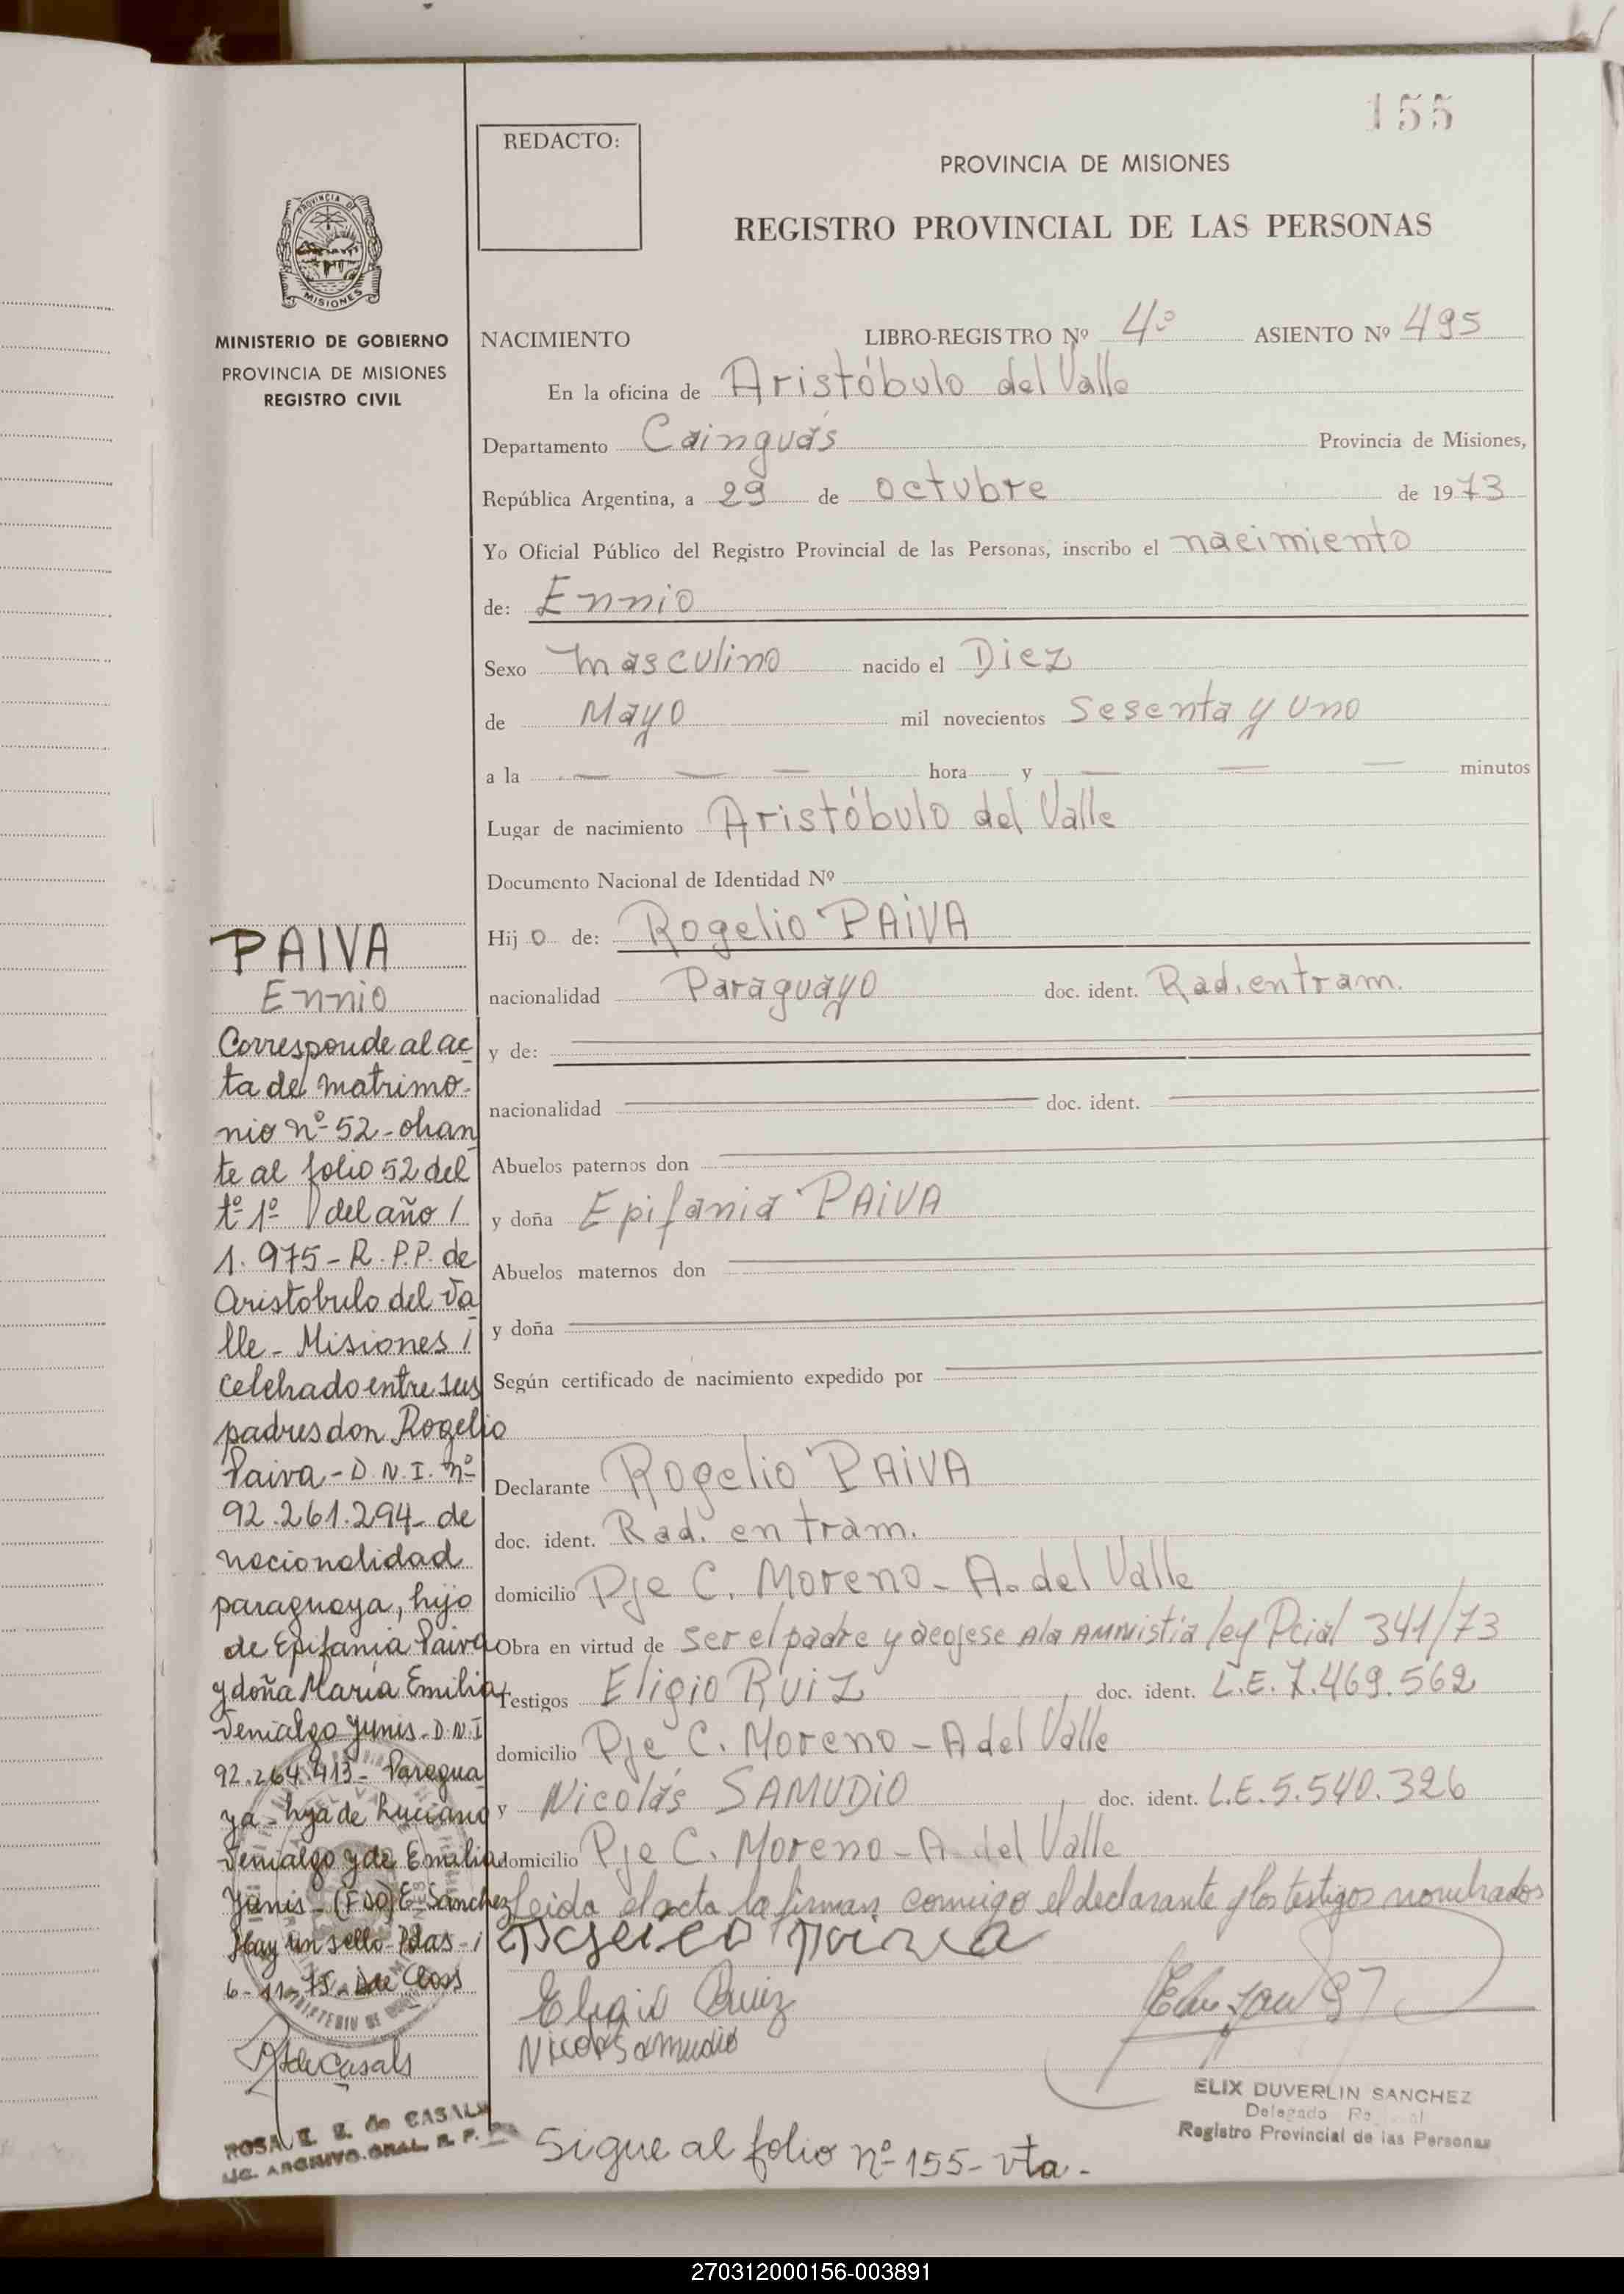 155
REDACTO:
PROVINCIA DE MISIONES
REGISTRO PROVINCIAL DE LAS PERSONAS
PROVINCIA DE
MISIONES
MINISTERIO DE GOBIERNO
PROVINCIA DE MISIONES
REGISTRO CIVIL
NACIMIENTO LIBRO-REGISTRO Nº 4º ASIENTO Nº 495
En la oficina de Aristóbulo del Valle
Departamento Cainguás Provincia de Misiones,
República Argentina, a 29 de octubre de 1973
Yo Oficial Público del Registro Provincial de las Personas, inscribo el nacimiento
de: Ennio
Sexo masculino nacido el Diez
de Mayo mil novecientos Sesenta y Uno
a la hora y minutos
Lugar de nacimiento Aristóbulo del Valle
Documento Nacional de Identidad Nº
Hijo de: Rogelio PAIVA
nacionalidad Paraguayo doc. ident. Rad. en tram.
y de:
nacionalidad doc. ident.
Abuelos paternos don
y doña Epifania PAIVA
Abuelos maternos don
y doña
Según certificado de nacimiento expedido por
Declarante Rogelio PAIVA
doc. ident. Rad. en tram.
domicilio Pje C. Moreno - A. del Valle
Obra en virtud de ser el padre y acojese A la AMNistía ley Pcial 341/73
Testigos Eligio RUIZ, doc. ident. L.E. 7.469.562
domicilio Pje C. Moreno - A del Valle
y Nicolás SAMUDIO, doc. ident. L.E. 5.540.326
domicilio Pje C. Moreno - A. del Valle
Leida el acta la firman conmigo el declarante y los testigos nombrados
Eligio Ruiz
Nicolas Samudio
ELIX DUVERLIN SANCHEZ
Delegado
Registro Provincial de las Personas
Sigue al folio nº 155 - vta.
PAIVA
Ennio
Corresponde al ac
ta de matrimo-
nio nº 52 - obran
te al folio 52 del
tº 1º del año /
1.975 - R.P.P. de
Aristobulo del Va
lle - Misiones /
celebrado entre sus
padres don Rogelio
Paiva - D.N.I. nº
92.261.294 - de
nacionalidad
paraguaya, hijo
de Epifania Paiva
y doña María Emilia
Venialgo Yunis - D.N.I
92.264.413 - Paragua
ya - hija de Luciano
Venialgo y de Emilia
Yunis - (FDO) E. Sanchez
Hay un sello - Pdas -
6-11-75 -
de Casals
ROSA E. de CASALS
ARCHIVO GRAL. R. P. P.
270312000156-003891